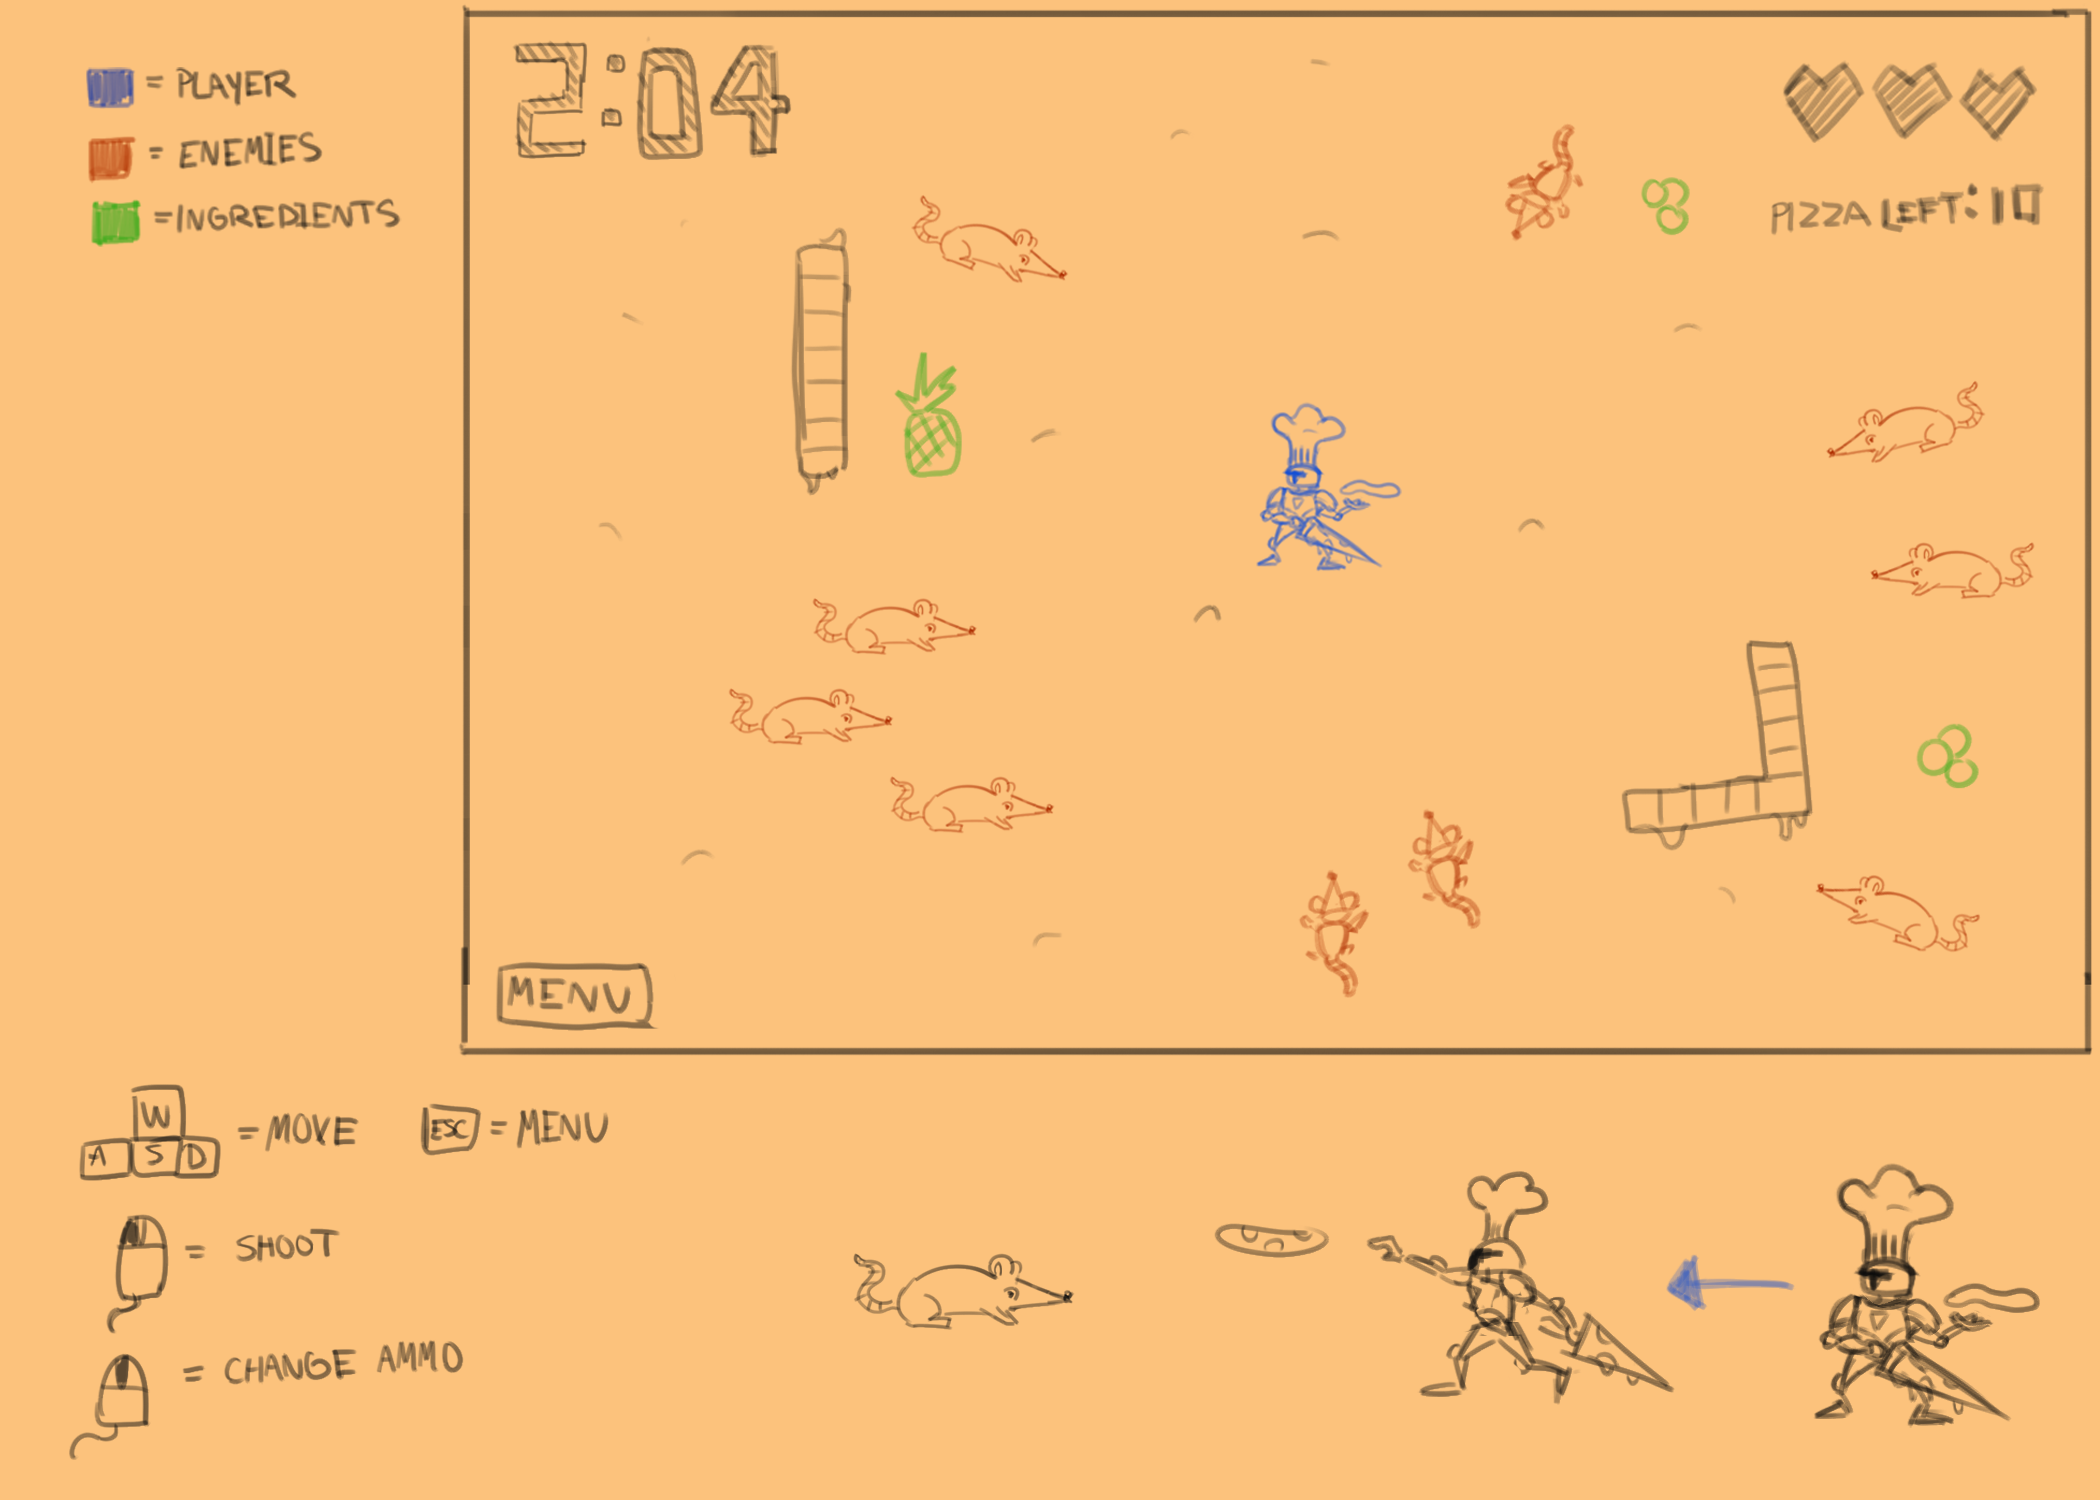 = PLAYER
= ENEMIES
= INGREDIENTS
2:04
PIZZA LEFT: 10
MENU
W
A S D
= MOVE
ESC = MENU
= SHOOT
= CHANGE AMMO